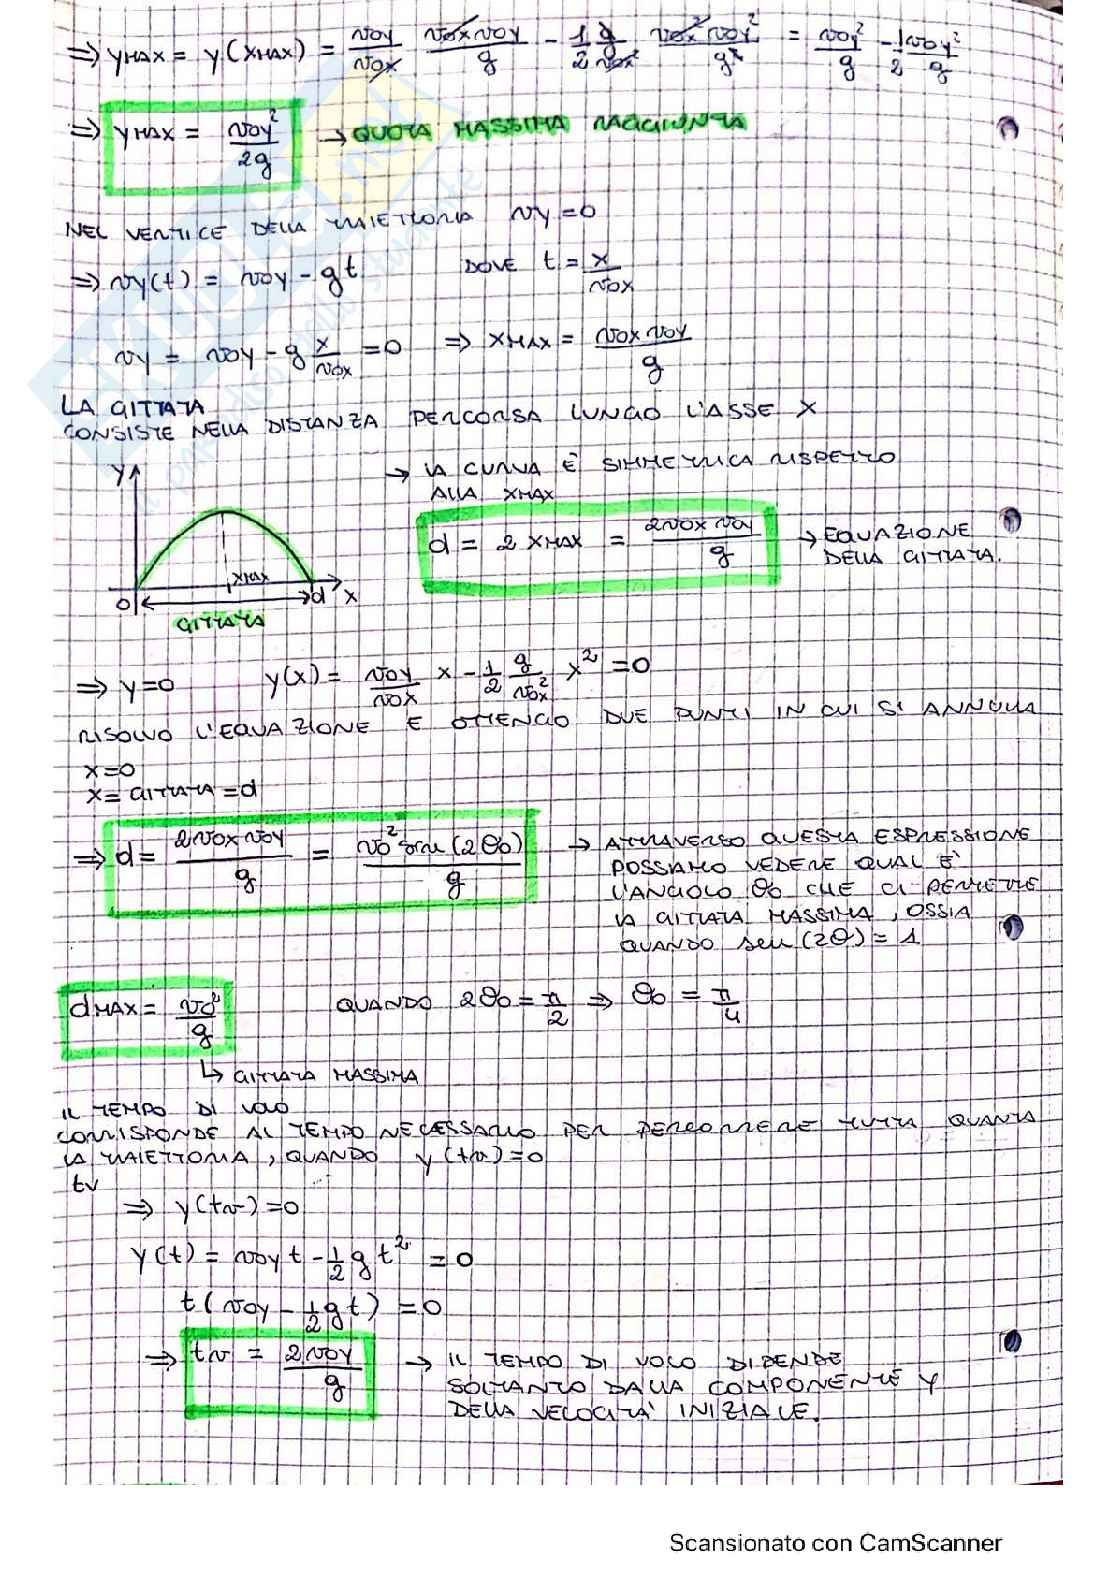 ⇒ yMAX = y(xMAX) = v0y/v0x · v0x v0y/g - 1/2 g/v0x² · v0x² v0y²/g² = v0y²/g - 1/2 v0y²/g
⇒ yMAX = v0y²/2g → QUOTA MASSIMA RAGGIUNTA
NEL VERTICE DELLA TRAIETTORIA vy = 0
⇒ vy(t) = v0y - gt DOVE t = x/v0x
vy = v0y - g x/v0x = 0 ⇒ xMAX = v0x v0y/g
LA GITTATA
CONSISTE NELLA DISTANZA PERCORSA LUNGO L'ASSE X
→ LA CURVA È SIMMETRICA RISPETTO
ALLA XMAX
y
xMAX
0 d x
GITTATA
d = 2 xMAX = 2v0x v0y/g → EQUAZIONE
DELLA GITTATA.
⇒ y=0 y(x) = v0y/v0x x - 1/2 g/v0x² x² = 0
RISOLVO L'EQUAZIONE E OTTENGO DUE PUNTI IN CUI SI ANNULLA
x=0
x= GITTATA = d
⇒ d = 2v0x v0y/g = v0² sen(2θ0)/g → ATTRAVERSO QUESTA ESPRESSIONE
POSSIAMO VEDERE QUAL È
L'ANGOLO θ0 CHE CI PERMETTE
LA GITTATA MASSIMA, OSSIA
QUANDO sen(2θ) = 1
dMAX = v0²/g QUANDO 2θ0 = π/2 ⇒ θ0 = π/4
↳ GITTATA MASSIMA
IL TEMPO DI VOLO
CORRISPONDE AL TEMPO NECESSARIO PER PERCORRERE TUTTA QUANTA
LA TRAIETTORIA, QUANDO y(tv)=0
tv
⇒ y(tv)=0
y(t) = v0y t - 1/2 g t² = 0
t(v0y - 1/2 gt) = 0
⇒ tv = 2v0y/g → IL TEMPO DI VOLO DIPENDE
SOLTANTO DALLA COMPONENTE Y
DELLA VELOCITÀ INIZIALE.
Scansionato con CamScanner